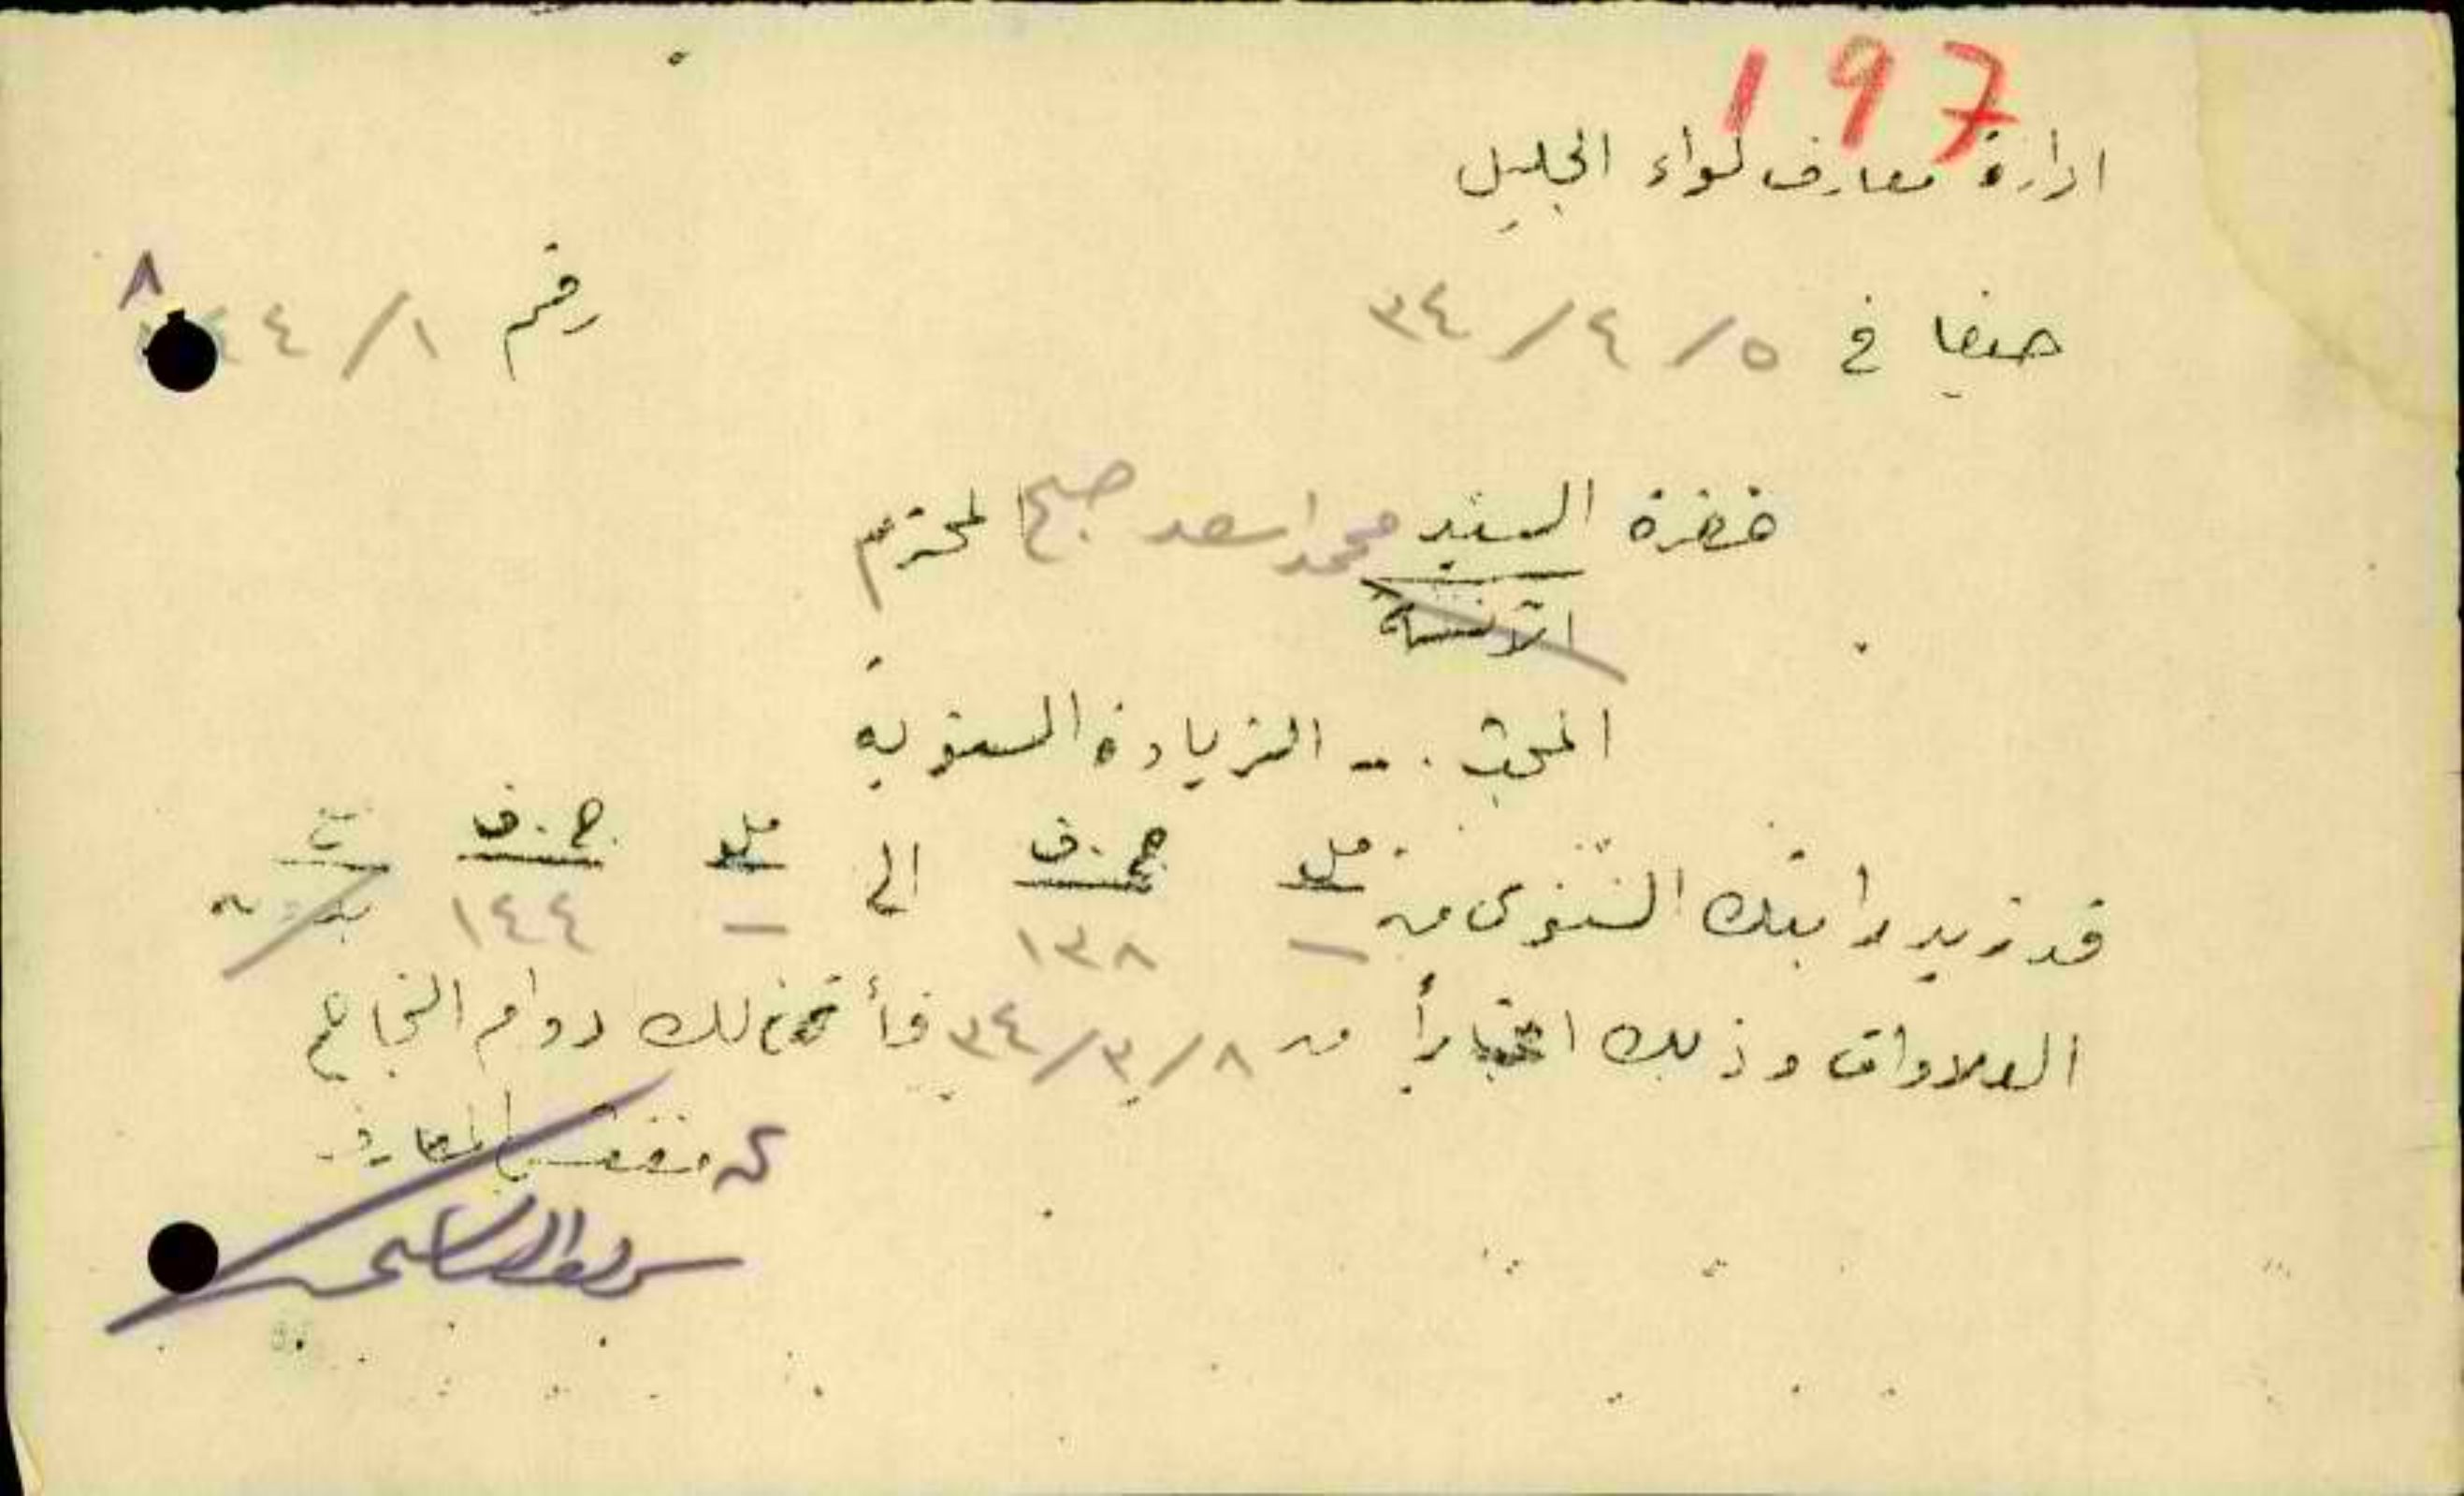 197
ادارة معارف لواء الجليل
حيفا في ٥/٤/٣٤
رقم ١/٤
٨
حضرة السيد محمد اسعد صبح المحترم
الآنسة
المبحث .- الزيادة السنوية
قد زيد راتبك السنوي من مل ج.ف الى مل ج.ف
— ١٣٨ — ١٤٤
العلاوات وذلك اعتباراً من ٨/٣/٣٤ فأتمنى لك دوام النجاح
مفتش المعارف